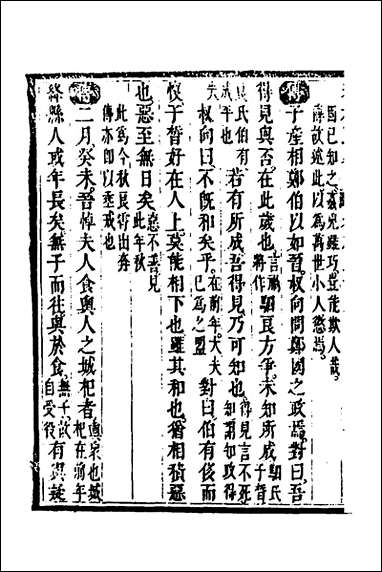 酉已知之蓋兇雖巧豈能欺人哉。
傳故遠此以為萬世小人懲焉。
傳 子產相鄭伯以如晉。叔向問鄭國之政焉。對曰。吾
得見與否。在此歲也。言禍將作駟良方爭。未知所成。駟氏子晳
良氏伯有成平也若有所成。吾得見乃可知也。言不死知謂知政得
失叔向曰。不既和矣乎。在前年大夫已為之盟對曰。伯有侈而
愎。子晳好在人上。莫能相下也。雖其和也。猶相積惡
也。惡至無日矣。惡不善見此年秋
此為今秋良霄出奔
傳亦即以垂戒也
傳 二月。癸未。晉悼夫人食輿人之城杞者。輿衆也城杞在前年
絳縣人或年長矣。無子而往。與於食。無子故自受役有與疑